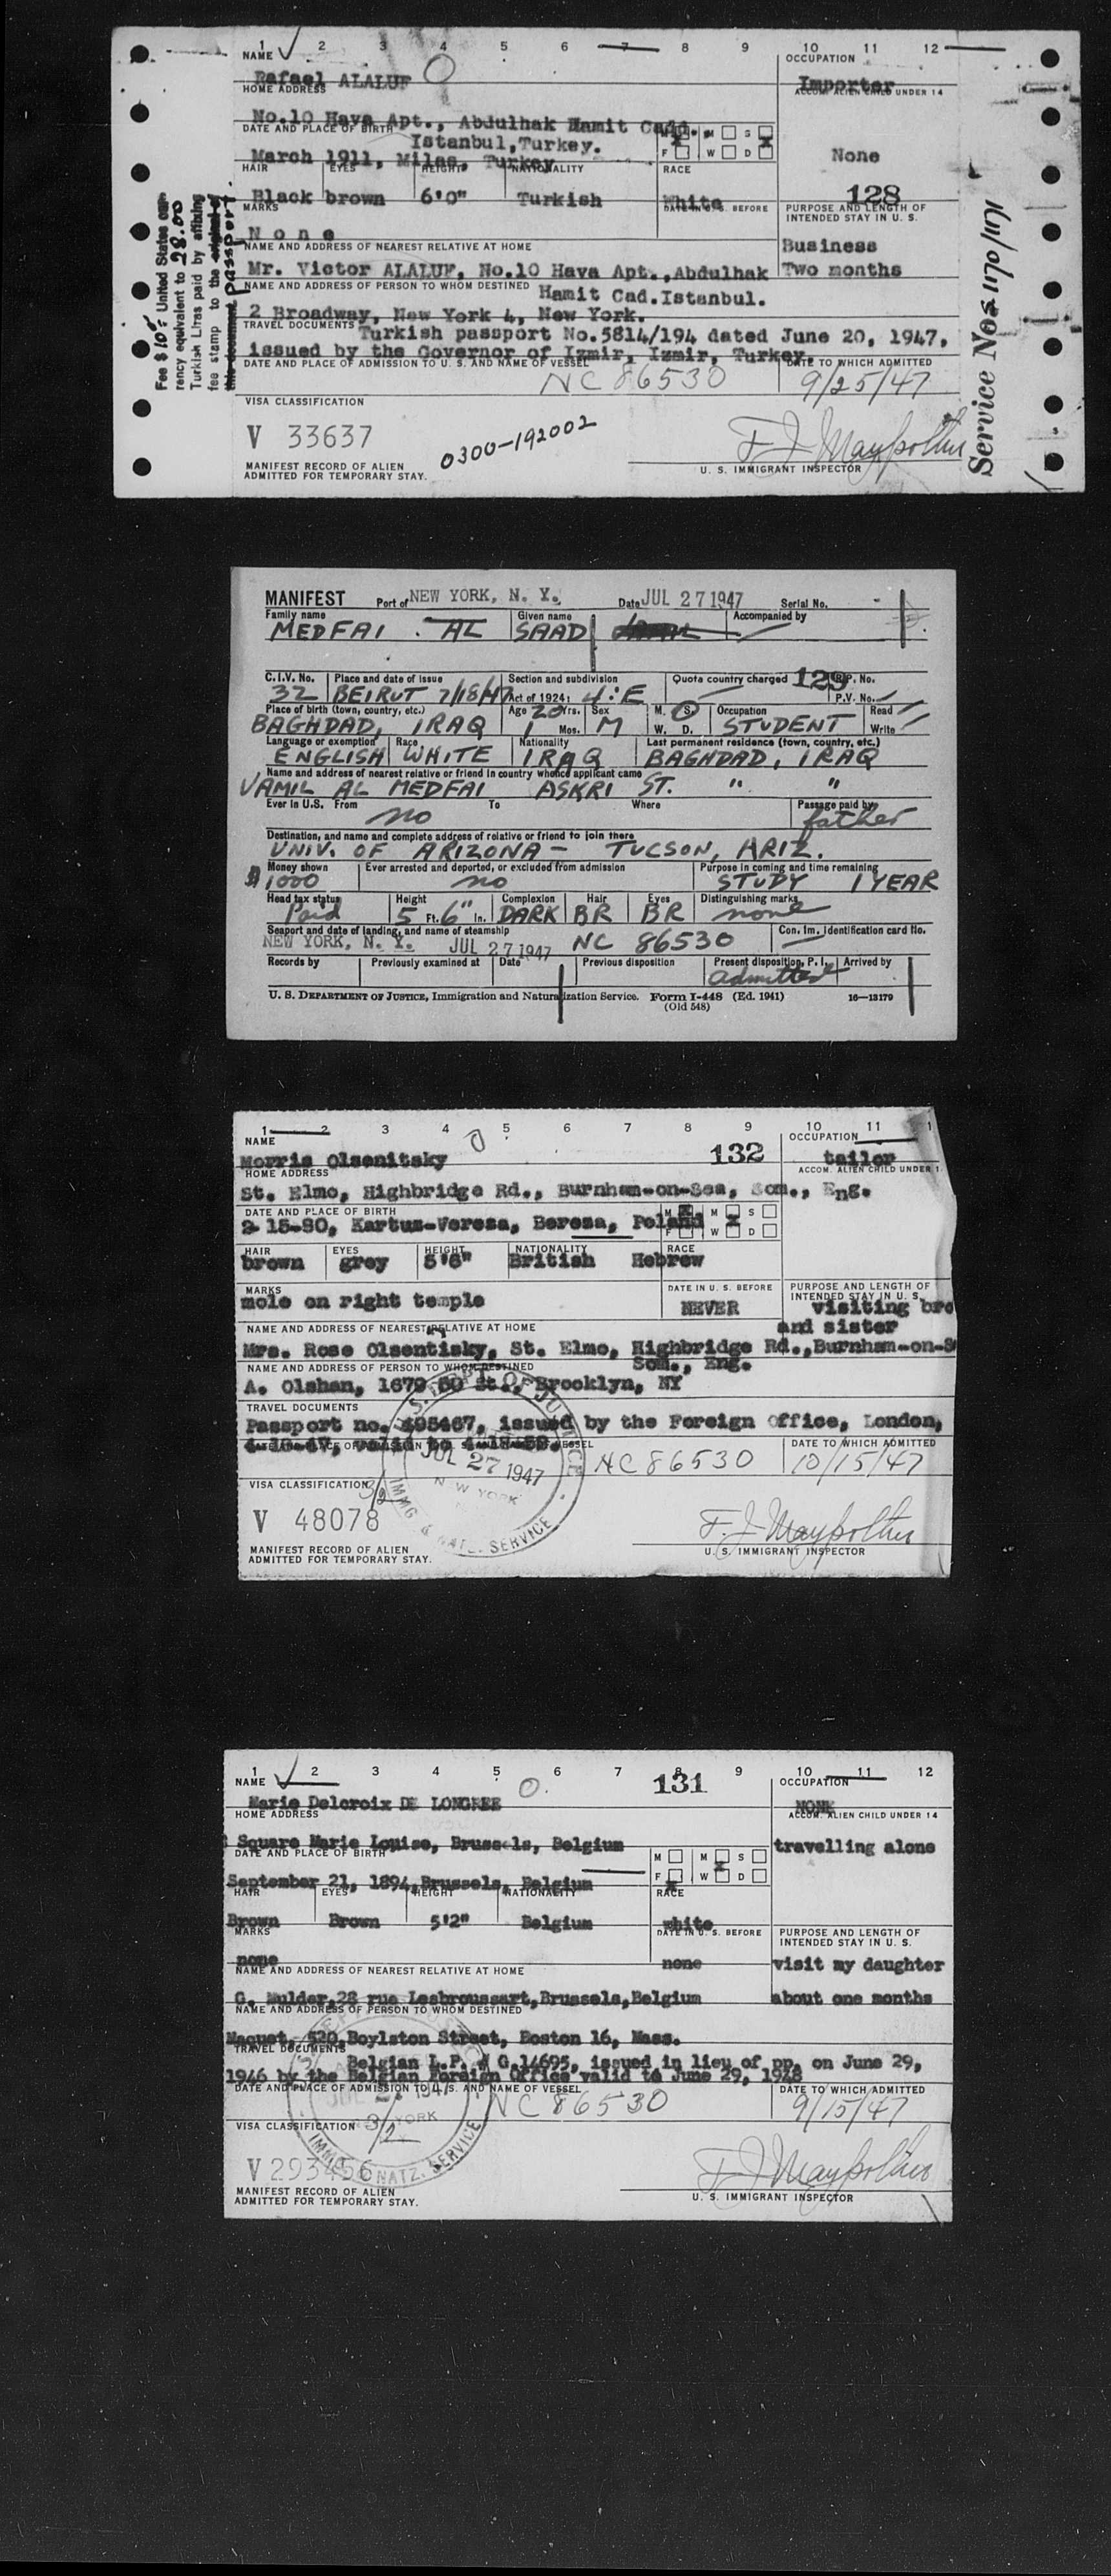 1 2 3 4 5 6 7 8 9 10 11 12
NAME
OCCUPATION
Rafael ALALUF
Importer
HOME ADDRESS
ACCOM. ALIEN CHILD UNDER 14
No.10 Hava Apt., Abdulhak Hamit Cadd.
DATE AND PLACE OF BIRTH
M M S
Istanbul, Turkey.
F W D
None
March 1911, Milas, Turkey
HAIR EYES HEIGHT NATIONALITY RACE
128
Black brown 6'0" Turkish White
MARKS
DATE IN U. S. BEFORE
PURPOSE AND LENGTH OF
INTENDED STAY IN U. S.
None
NAME AND ADDRESS OF NEAREST RELATIVE AT HOME
Business
Mr. Victor ALALUF, No.10 Hava Apt.,Abdulhak Two months
NAME AND ADDRESS OF PERSON TO WHOM DESTINED Hamit Cad.Istanbul.
2 Broadway, New York 4, New York.
TRAVEL DOCUMENTS Turkish passport No.5814/194 dated June 20, 1947,
issued by the Governor of Izmir, Izmir, Turkey.
DATE AND PLACE OF ADMISSION TO U. S. AND NAME OF VESSEL
DATE TO WHICH ADMITTED
NC 86530 9/25/47
VISA CLASSIFICATION
V 33637
0300-192002
F J Maypother
MANIFEST RECORD OF ALIEN
ADMITTED FOR TEMPORARY STAY.
U. S. IMMIGRANT INSPECTOR
Fee $ 10.- United States cur-
rency equivalent to 28.00
Turkish Liras paid by affixing
fee stamp to the original of
this document passport.
Service No: 1170/1171
MANIFEST Port of NEW YORK, N. Y. Date JUL 27 1947 Serial No.
Family name Given name Accompanied by
MEDFAI . AL SAAD
C.I.V. No. Place and date of issue Section and subdivision Quota country charged 129 R.P. No.
32 BEIRUT 7/18/47 Act of 1924: 4:E P.V. No.
Place of birth (town, country, etc.) Age 20 Yrs. Sex M. S. Occupation Read
BAGHDAD, IRAQ 1 Mos. M W. D. STUDENT Write
Language or exemption Race Nationality Last permanent residence (town, country, etc.)
ENGLISH WHITE IRAQ BAGHDAD, IRAQ
Name and address of nearest relative or friend in country whence applicant came
VAMIL AL MEDFAI ASKRI ST. " "
Ever in U.S. From To Where Passage paid by
no father
Destination, and name and complete address of relative or friend to join there
UNIV. OF ARIZONA - TUCSON, ARIZ.
Money shown Ever arrested and deported, or excluded from admission Purpose in coming and time remaining
$1000 no STUDY 1 YEAR
Head tax status Height Complexion Hair Eyes Distinguishing marks
Paid 5 Ft. 6" In. DARK BR BR none
Seaport and date of landing, and name of steamship Con. Im. identification card No.
NEW YORK, N. Y. JUL 27 1947 NC 86530
Records by Previously examined at Date Previous disposition Present disposition, P. I. Arrived by
admitted
U. S. DEPARTMENT OF JUSTICE, Immigration and Naturalization Service. Form I-448 (Ed. 1941) 16—13179
(Old 548)
1 2 3 4 5 6 7 8 9 10 11 1
NAME
OCCUPATION
Morris Olsenitsky 132 tailor
HOME ADDRESS
ACCOM. ALIEN CHILD UNDER 1
St. Elmo, Highbridge Rd., Burnham-on-Sea, Som., Eng.
DATE AND PLACE OF BIRTH
M M S
2-15-80, Kartuz-Veresa, Beresa, Poland
F W D
HAIR EYES HEIGHT NATIONALITY RACE
brown grey 5'6" British Hebrew
MARKS
DATE IN U. S. BEFORE
PURPOSE AND LENGTH OF
INTENDED STAY IN U. S.
mole on right temple NEVER visiting bro
NAME AND ADDRESS OF NEAREST RELATIVE AT HOME
and sister
Mrs. Rose Olsentisky, St. Elmo, Highbridge Rd.,Burnham-on-S
NAME AND ADDRESS OF PERSON TO WHOM DESTINED Som., Eng.
A. Olshan, 1679 60 St., Brooklyn, NY
TRAVEL DOCUMENTS
Passport no. 495467, issued by the Foreign Office, London,
DATE TO WHICH ADMITTED
NC 86530 10/15/47
JUL 27 1947
NEW YORK
IMMG. & NATZ. SERVICE
VISA CLASSIFICATION 3/2
V 48078
F. J. Maypother
MANIFEST RECORD OF ALIEN
ADMITTED FOR TEMPORARY STAY.
U. S. IMMIGRANT INSPECTOR
1 2 3 4 5 6 7 8 9 10 11 12
NAME
131
OCCUPATION
Marie Delcroix DE LONGREE NONE
HOME ADDRESS
ACCOM. ALIEN CHILD UNDER 14
Square Marie Louise, Brussels, Belgium travelling alone
DATE AND PLACE OF BIRTH
M M S
F W D
September 21, 1894,Brussels, Belgium
HAIR EYES HEIGHT NATIONALITY RACE
Brown Brown 5'2" Belgium white
MARKS
DATE IN U. S. BEFORE
PURPOSE AND LENGTH OF
INTENDED STAY IN U. S.
none none visit my daughter
NAME AND ADDRESS OF NEAREST RELATIVE AT HOME
G. Mulder,28 rue Lesbroussart,Brussels,Belgium about one months
NAME AND ADDRESS OF PERSON TO WHOM DESTINED
Maquet, 520,Boylston Street, Boston 16, Mass.
TRAVEL DOCUMENTS
Belgian L.P. # G.14695, issued in lieu of pp. on June 29,
1946 by the Belgian Foreign Office valid to June 29, 1948
DATE AND PLACE OF ADMISSION TO U. S. AND NAME OF VESSEL
DATE TO WHICH ADMITTED
NC 86530 9/15/47
VISA CLASSIFICATION 3/2
IMMG. & NATZ. SERVICE
V 293456
F J Maypother
MANIFEST RECORD OF ALIEN
ADMITTED FOR TEMPORARY STAY.
U. S. IMMIGRANT INSPECTOR